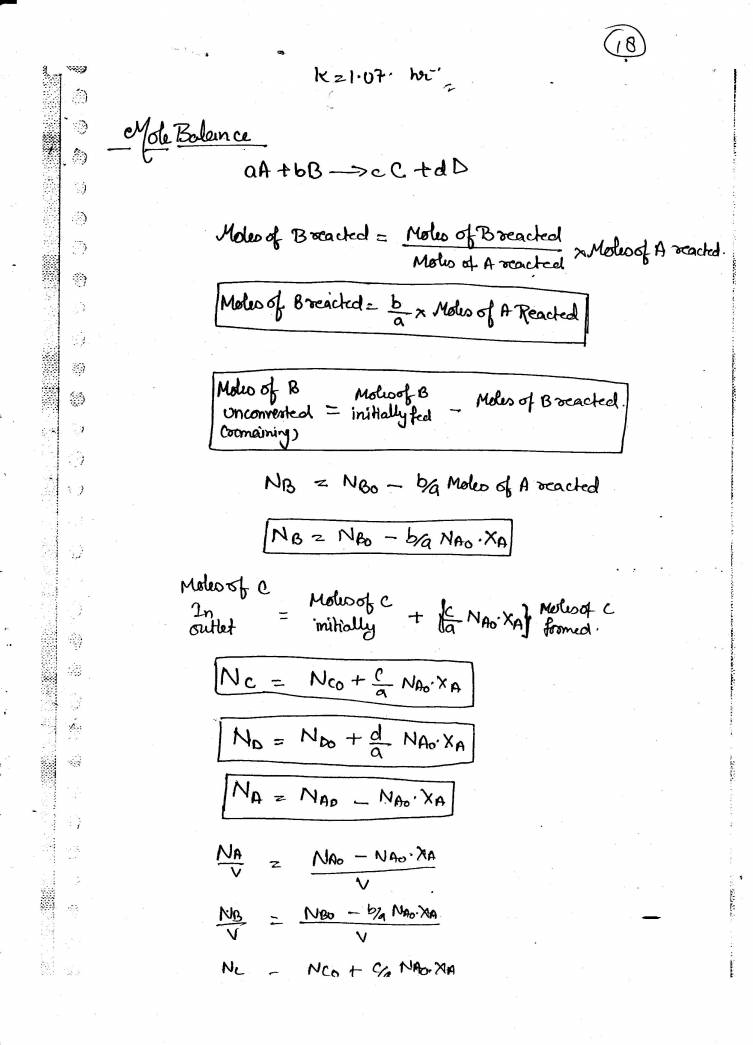 18
K = 1.07 hr⁻¹
Mole Balance
aA + bB → cC + dD
Moles of B reacted = Moles of B reacted / Moles of A reacted × Moles of A reacted.
Moles of B reacted = b/a × Moles of A Reacted
Moles of B unconverted (remaining) = Moles of B initially fed - Moles of B reacted.
NB = NB0 - b/a Moles of A reacted
NB = NB0 - b/a NA0·XA
Moles of C In outlet = Moles of C initially + {c/a NA0·XA} Moles of C formed.
NC = NC0 + c/a NA0·XA
ND = ND0 + d/a NA0·XA
NA = NA0 - NA0·XA
NA/V = NA0 - NA0·XA / V
NB/V = NB0 - b/a NA0·XA / V
NC - NC0 + c/a NA0·XA